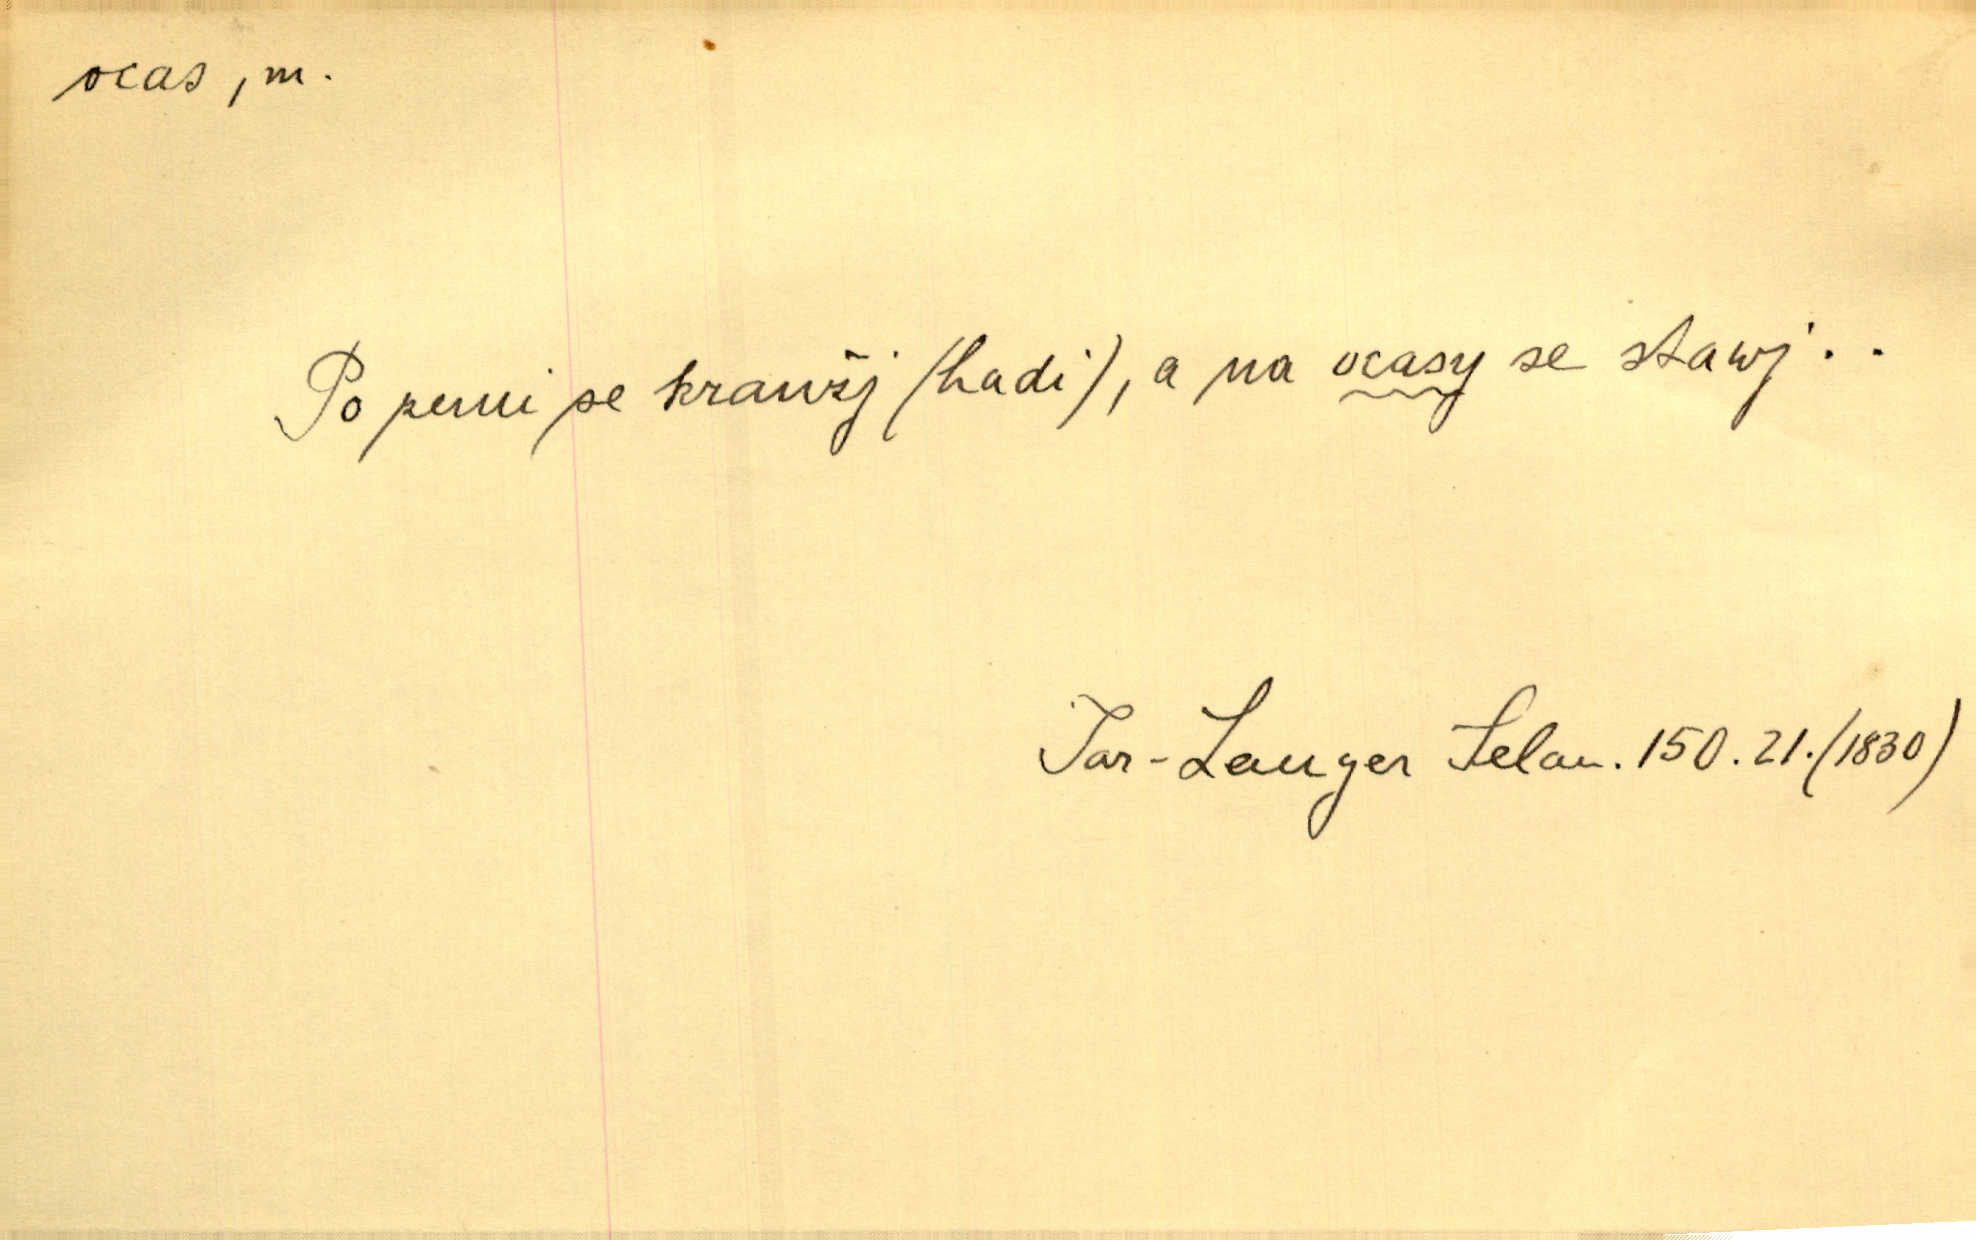 ocas, m.
Po zemi se kraužj (hadi), a na ocasy se stawj..
Jar-Langer Selan. 150. 21. (1830)